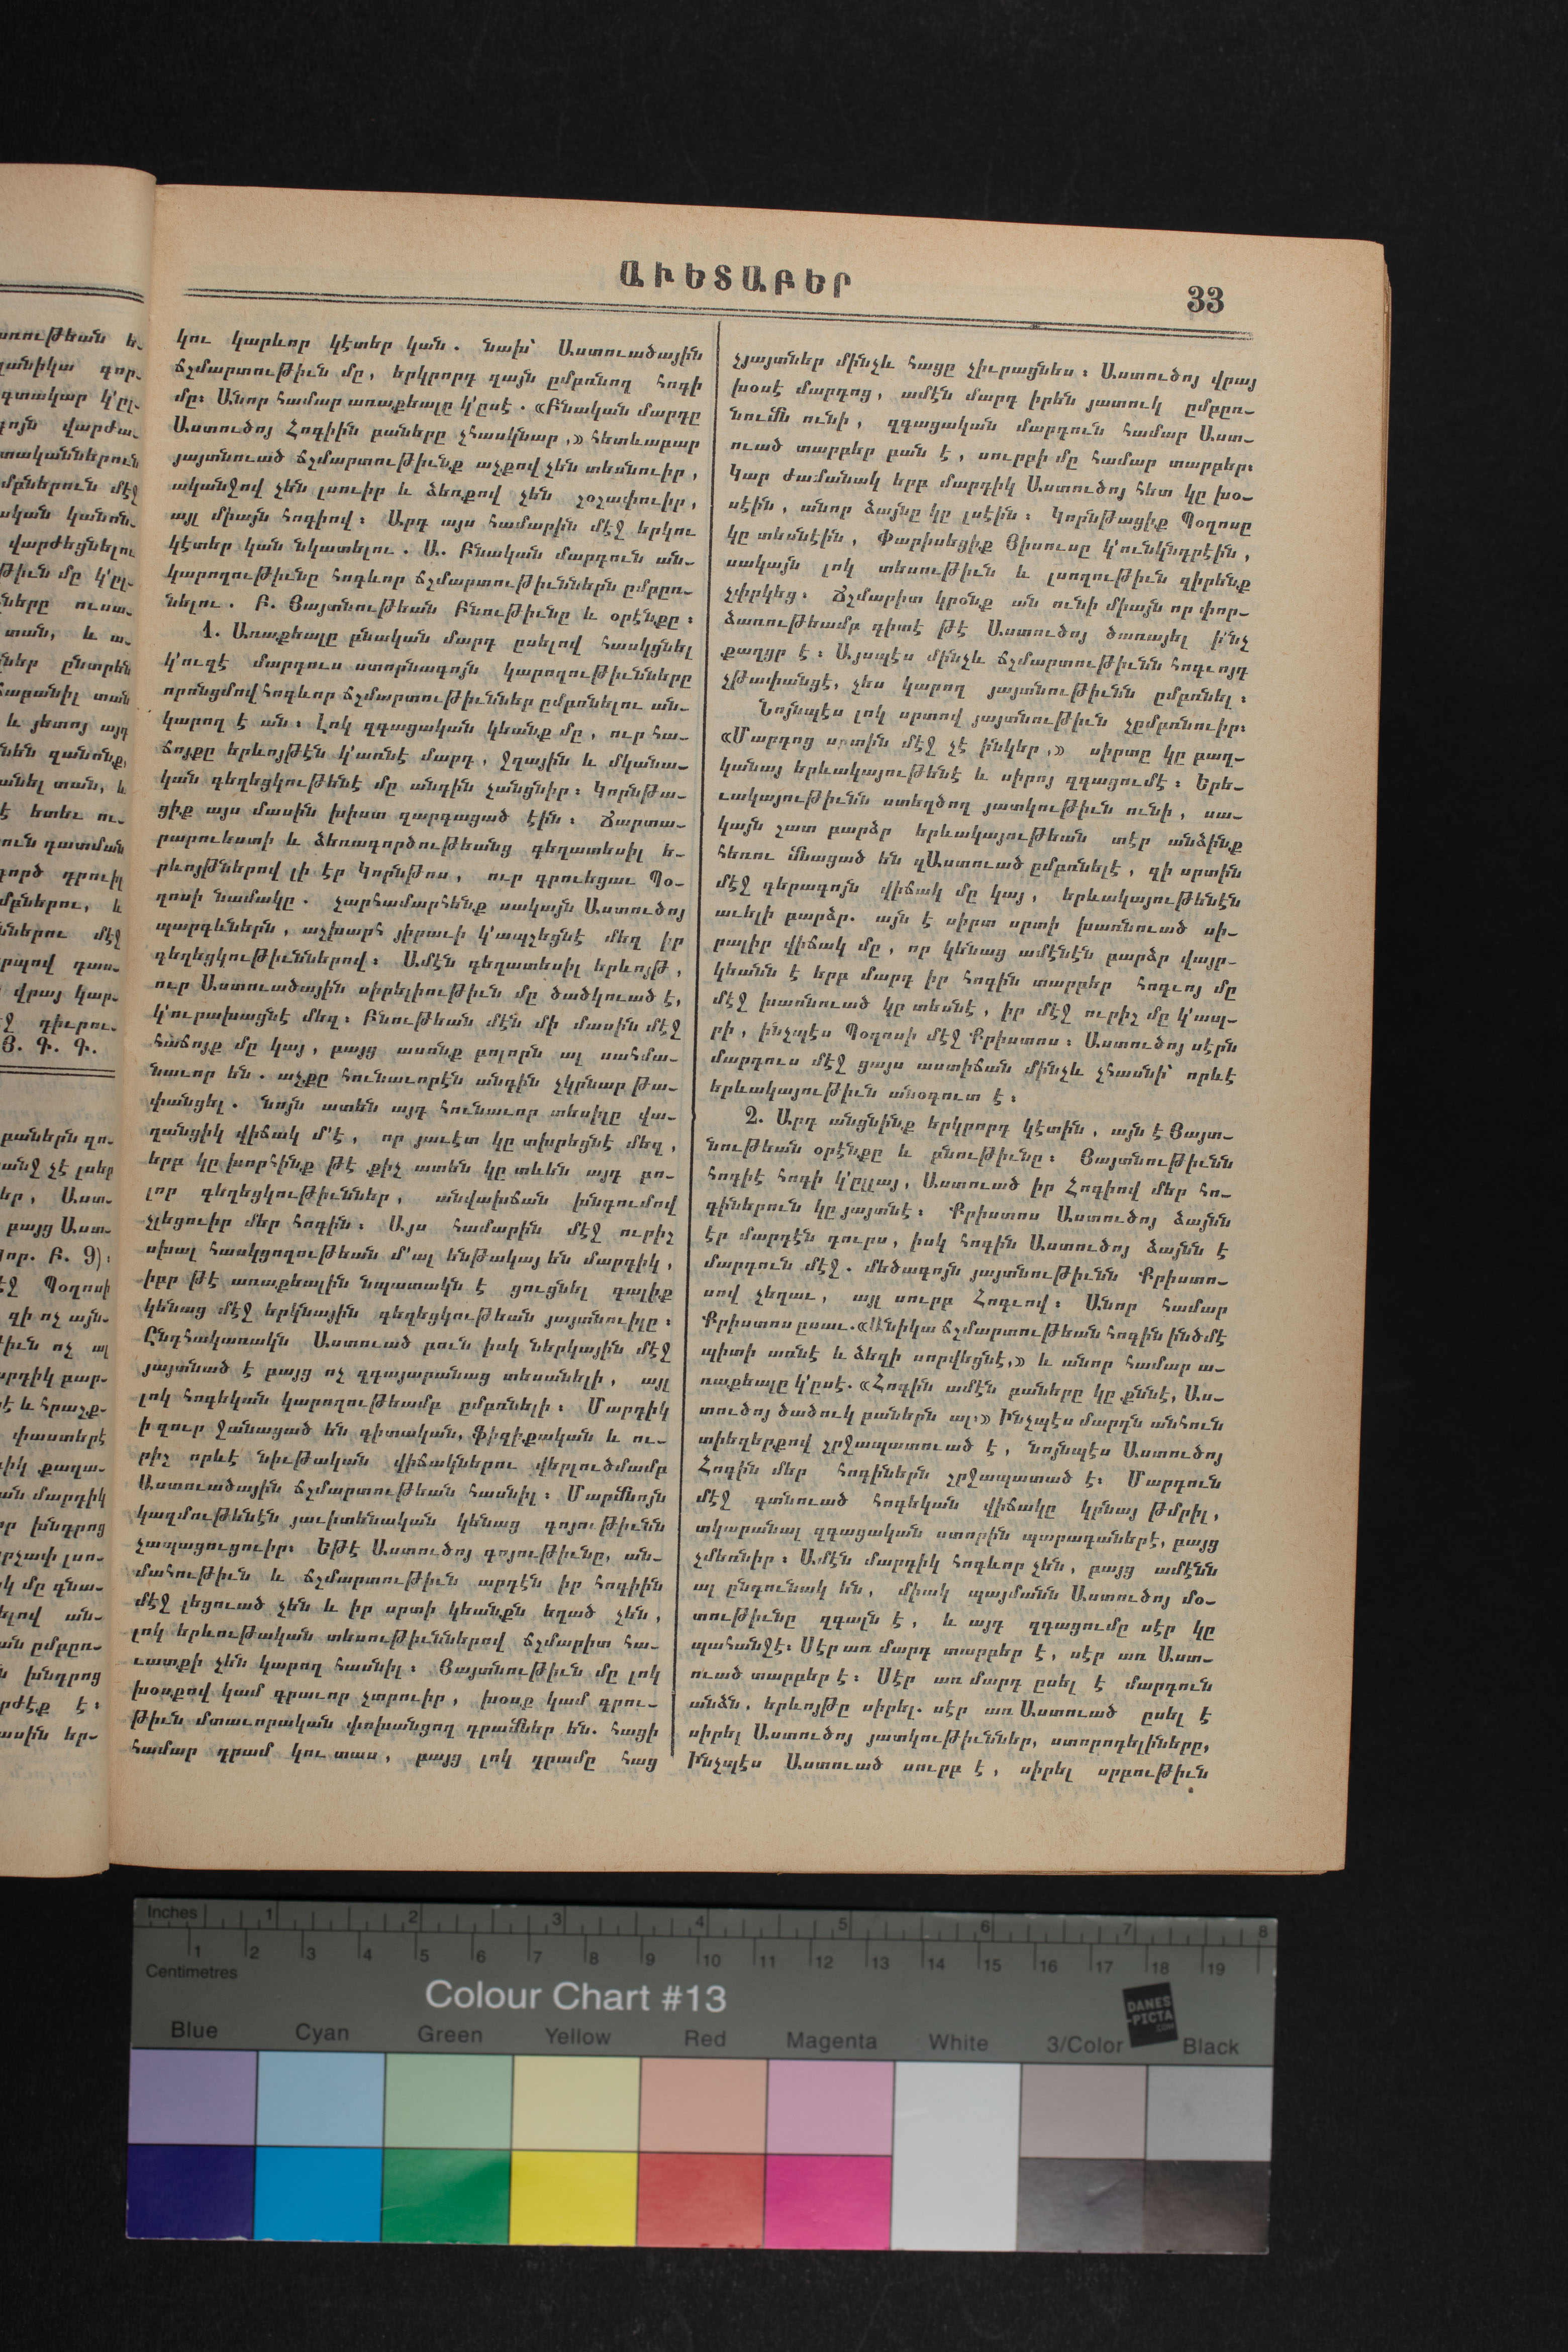 ԱՒԵՏԱԲԵՐ
33
կու կարևոր կէտեր կան. նախ՝ Աստուածային
ճշմարտութիւն մը, երկրորդ զայն ըմբռնող հոգի
մը: Անոր համար առաքեալը կ'ըսէ. «Բնական մարդը
Աստուծոյ Հոգիին բաները չհասկնար,» հետևաբար
յայտնուած ճշմարտութիւնք աչքով չեն տեսնուիր,
ականջով չեն լսուիր և ձեռքով չեն շօշափուիր,
այլ միայն հոգիով: Արդ այս համարին մէջ երկու
կէտեր կան նկատելու. Ա. Բնական մարդուն ան-
կարողութիւնը հոգևոր ճշմարտութիւններն ըմբըռ-
նելու. Բ. Յայտնութեան Բնութիւնը և օրէնքը:
1. Առաքեալը բնական մարդ ըսելով հասկցնել
կ'ուզէ մարդուս ստորնագոյն կարողութիւնները
որոնցմով հոգևոր ճշմարտութիւններ ըմբռնելու ան-
կարող է ան: Լոկ զգացական կեանք մը, ուր հա-
ճոյքը երևոյթէն կ'առնէ մարդ, ջղային և մկանա-
կան գեղեցկութենէ մը անդին չանցնիր: Կորնթա-
ցիք այս մասին խիստ զարգացած էին: Ճարտա-
րարուեստի և ձեռագործութեանց գեղատեսիլ ե-
րևոյթներով լի էր Կորնթոս, ուր գրուեցաւ Պօ-
ղոսի նամակը. չարհամարհենք սակայն Աստուծոյ
պարգևներն, աշխարհ յիրաւի կ'ապշեցնէ մեզ իր
գեղեցկութիւններով: Ամէն գեղատեսիլ երևոյթ,
ուր Աստուածային սիրելիութիւն մը ծածկուած է,
կ'ուրախացնէ մեզ: Բնութեան մէն մի մասին մէջ
հաճոյք մը կայ, բայց ասոնք բոլորն ալ սահմա-
նաւոր են. աչքը հունաւորէն անդին չկրնար թա-
փանցել. նոյն ատեն այդ հունաւոր տեսիլը վա-
ղանցիկ վիճակ մ'է, որ յաւէտ կը տխրեցնէ մեզ,
երբ կը խորհինք թէ քիչ ատեն կը տևեն այդ բո-
լոր գեղեցկութիւններ, անվախճան խնդումով
չլեցուիր մեր հոգին: Այս համարին մէջ ուրիշ
սխալ հասկցողութեան մ'ալ ենթակայ են մարդիկ,
իբր թէ առաքեալին նպատակն է ցուցնել գալիք
կենաց մէջ երկնային գեղեցկութեան յայտնուիլը:
Ընդհակառակն Աստուած բուն իսկ ներկային մէջ
յայտնած է բայց ոչ զգայարանաց տեսանելի, այլ
լոկ հոգեկան կարողութեամբ ըմբռնելի: Մարդիկ
ի զուր ջանացած են գիտական, ֆիզիքական և ու-
րիշ որևէ նիւթական վիճակներու վերլուծմամբ
Աստուածային ճշմարտութեան հասնիլ: Մարմնոյն
կազմութենէն յաւիտենական կենաց գոյութիւնն
չապացուցուիր: Եթէ Աստուծոյ գոյութիւնը, ան-
մահութիւն և ճշմարտութիւն արդէն իր հոգիին
մէջ լեցուած չեն և իր սրտի կեանքն եղած չեն,
լոկ երևութական տեսութիւններով ճշմարիտ հա-
ւատքի չեն կարող հասնիլ: Յայտնութիւն մը լոկ
խօսքով կամ գրաւոր չտրուիր, խօսք կամ գրու-
թիւն մտաւորական փոխանցող դրամներ են. հացի
համար դրամ կու տաս, բայց լոկ դրամը հաց
չյայտներ մինչև հացը չիւրացնես: Աստուծոյ վրայ
խօսէ մարդոց, ամէն մարդ իրեն յատուկ ըմբըռ-
նումն ունի, զգացական մարդուն համար Աստ-
ուած տարբեր բան է, սուրբի մը համար տարբեր:
Կար ժամանակ երբ մարդիկ Աստուծոյ հետ կը խօ-
սէին, անոր ձայնը կը լսէին: Կորնթացիք Պօղոսը
կը տեսնէին, Փարիսեցիք Յիսուսը կ'ունկնդրէին,
սակայն լոկ տեսութիւն և լսողութիւն զիրենք
չփրկեց: Ճշմարիտ կրօնք ան ունի միայն որ փոր-
ձառութեամբ գիտէ թէ Աստուծոյ ծառայել ի՛նչ
քաղցր է: Այսպէս մինչև ճշմարտութիւնն հոգւոյդ
չթափանցէ, չես կարող յայտնութիւնն ըմբռնել:
Նոյնպէս լոկ սրտով յայտնութիւն չըմբռնուիր:
«Մարդոց սրտին մէջ չէ ինկեր,» սիրտը կը բաղ-
կանայ երևակայութենէ և սիրոյ զգացումէ: Երե-
ւակայութիւնն ստեղծող յատկութիւն ունի, սա-
կայն շատ բարձր երևակայութեան տէր անձինք
հեռու մնացած են զԱստուած ըմբռնելէ, զի սրտին
մէջ գերագոյն վիճակ մը կայ, երևակայութենէն
աւելի բարձր. այն է սիրտ սրտի խառնուած սի-
րալիր վիճակ մը, որ կենաց ամէնէն բարձր վայր-
կեանն է երբ մարդ իր հոգին տարբեր հոգւոյ մը
մէջ խառնուած կը տեսնէ, իր մէջ ուրիշ մը կ'ապ-
րի, ինչպէս Պօղոսի մէջ Քրիստոս: Աստուծոյ սէրն
մարդուս մէջ ցայս աստիճան մինչև չհասնի՝ որևէ
երևակայութիւն անօգուտ է:
2. Արդ անցնինք երկրորդ կէտին, այն է Յայտ-
նութեան օրէնքը և բնութիւնը: Յայտնութիւնն
հոգիէ հոգի կ'ըլլայ, Աստուած իր Հոգիով մեր հո-
գիներուն կը յայտնէ: Քրիստոս Աստուծոյ ձայնն
էր մարդէն դուրս, իսկ հոգին Աստուծոյ ձայնն է
մարդուն մէջ. մեծագոյն յայտնութիւնն Քրիստո-
սով չեղաւ, այլ սուրբ Հոգւով: Անոր համար
Քրիստոս ըսաւ. «Անիկա ճշմարտութեան հոգին ինծմէ
պիտի առնէ և ձեզի սորվեցնէ,» և անոր համար ա-
ռաքեալը կ'ըսէ. «Հոգին ամէն բաները կը քննէ, Աս-
տուծոյ ծածուկ բաներն ալ.» Ինչպէս մարդն անհուն
տիեզերքով շրջապատուած է, նոյնպէս Աստուծոյ
Հոգին մեր հոգիներն շրջապատած է: Մարդուն
մէջ գտնուած հոգեկան վիճակը կրնայ թմրիլ,
տկարանալ զգացական ստորին պարագաներէ, բայց
չմեռնիր: Ամէն մարդիկ հոգևոր չեն, բայց ամէնն
ալ ընդունակ են, միակ պայմանն Աստուծոյ մօ-
տութիւնը զգալն է, և այդ զգացումը սէր կը
պահանջէ: Սէր առ մարդ տարբեր է, սէր առ Աստ-
ուած տարբեր է: Սէր առ մարդ ըսել է մարդուն
անձն, երևոյթը սիրել. սէր առ Աստուած ըսել է
սիրել Աստուծոյ յատկութիւններ, ստորոգելիները,
Ինչպէս Աստուած սուրբ է, սիրել սրբութիւն
Inches 1 2 3 4 5 6 7 8
1 2 3 4 5 6 7 8 9 10 11 12 13 14 15 16 17 18 19
Centimetres
Colour Chart #13
DANES
-PICTA
.COM
Blue Cyan Green Yellow Red Magenta White 3/Color Black